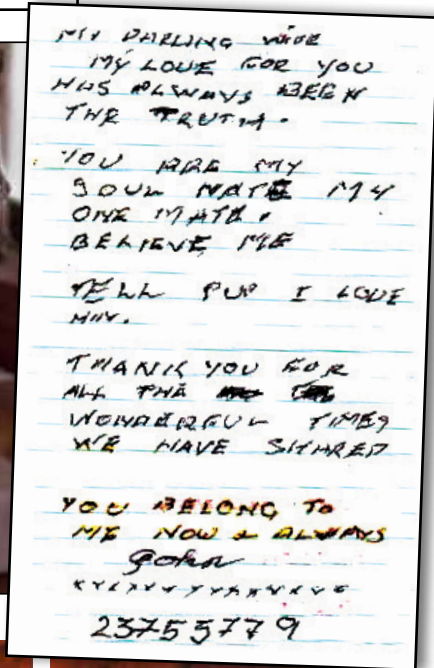 MY DARLING WIFE
MY LOVE FOR YOU
HAS ALWAYS BEEN
THE TRUTH.
YOU ARE MY
SOUL MATE MY
ONE MATE.
BELIEVE ME
TELL PUP I LOVE
HIM.
THANK YOU FOR
ALL THE
WONDERFUL TIMES
WE HAVE SHARED
YOU BELONG TO
ME NOW & ALWAYS
John
23755779